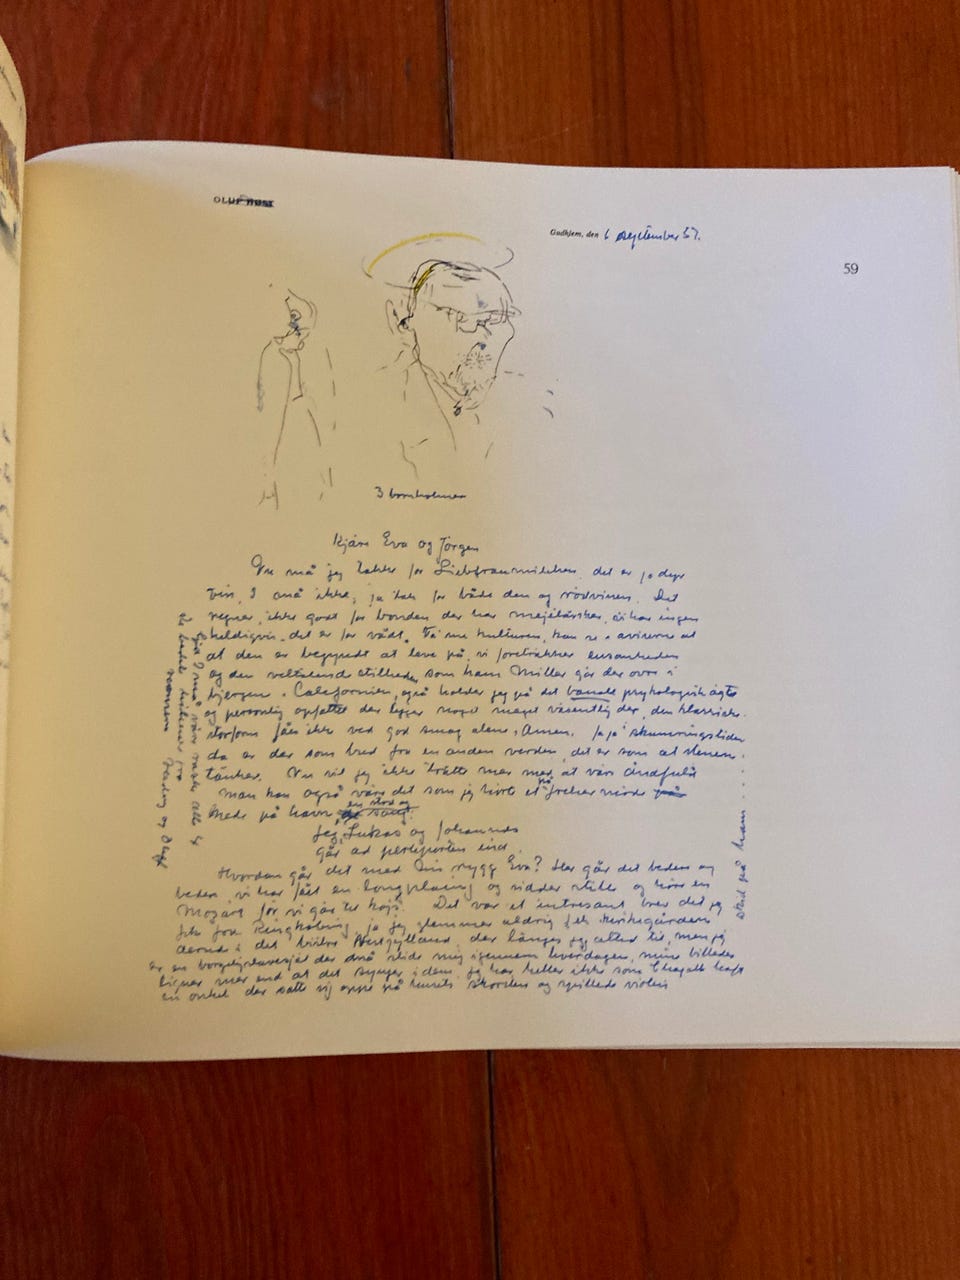 OLUF HØST
Gudhjem, den 6 september 57.
59
3 bornholmer
Kjære Eva og Jørgen
Nu må jeg takke for Liebfraumilchen, det er jo dyr
vin, I må ikke, ja tak for både den og rødvinen. Det
regner, ikke godt for bonden der har mejetærsker, vi har ingen
heldigvis, det er for vådt. Få nu kulturen, kan se i aviserne at
at den er begyndt at leve på, vi foretrækker ensomheden
og den veltalende stilhed, som ham Miller går der ovre i
bjergene i Californien, også holder jeg på det vande psykologisk ægte
og personlig opfattet der ligger noget meget væsentlig der, den klassiske
storform fåes ikke ved god smag alene, Amen. Ja ja skumringstiden
da er der som bred fra en anden verden, det er som at stenene
tænker. Nu vil jeg ikke trætte mer med at være åndfuld
man kan også være det som jeg hørte et på
nede på havn en stod og sang:
Jeg, Lukas og Johannes
går ad perleporten ind.
Hvordan går det med din ryg Eva? Her går det bedre og
bedre, vi har fået en longplaying og sidder stille og hører en
Mozart før vi går til køjs. Det var et intresant brev det jeg
fik fra Ringkøbing, ja jeg glemmer aldrig kirkegården
derude i det Vestjylland, der længes jeg altid til, men jeg
er en der må slide mig igennem hverdagen, mine billeder
ligner mer end at det synger i dem, jeg har heller ikke som Chagall haft
en onkel der satte sig oppe på husets skorsten og spillede violin
I må være raske alle 4
de bedste hilsener fra
Hedvig og Oluf
skid på ham....